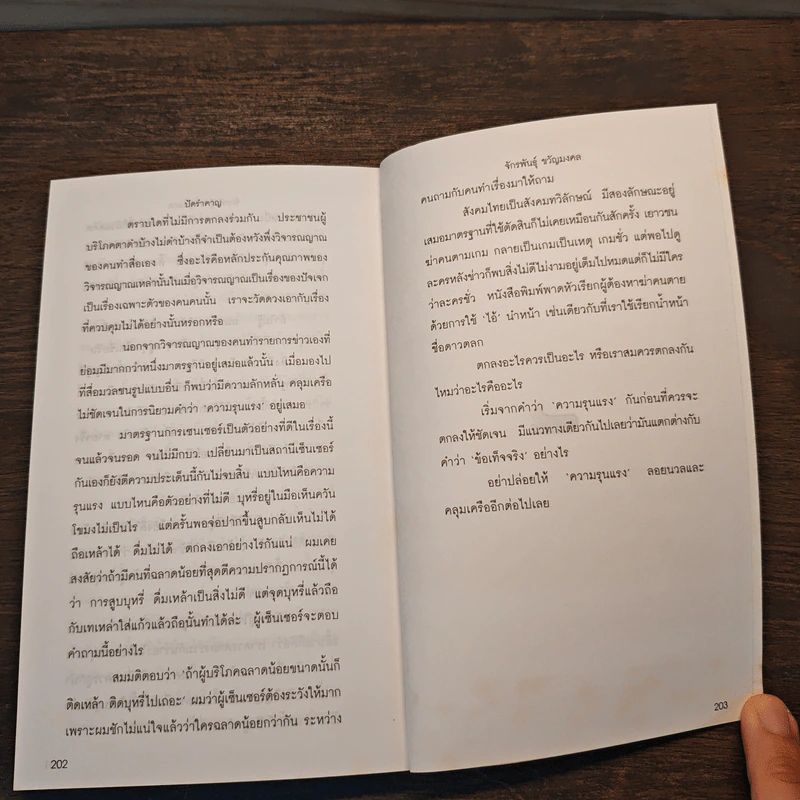 ปัดรำคาญ
ตราบใดที่ไม่มีการตกลงร่วมกัน ประชาชนผู้
บริโภคตาดำบ้างไม่ดำบ้างก็จำเป็นต้องหวังพึ่งวิจารณญาณ
ของคนทำสื่อเอง ซึ่งอะไรคือหลักประกันคุณภาพของ
วิจารณญาณเหล่านั้นในเมื่อวิจารณญาณเป็นเรื่องของปัจเจก
เป็นเรื่องเฉพาะตัวของคนคนนั้น เราจะวัดตวงเอากับเรื่อง
ที่ควบคุมไม่ได้อย่างนั้นหรอกหรือ
นอกจากวิจารณญาณของคนทำรายการข่าวเองที่
ย่อมมีมากกว่าหนึ่งมาตรฐานอยู่เสมอแล้วนั้น เมื่อมองไป
ที่สื่อมวลชนรูปแบบอื่น ก็พบว่ามีความลักหลั่น คลุมเครือ
ไม่ชัดเจนในการนิยามคำว่า ‘ความรุนแรง’ อยู่เสมอ
มาตรฐานการเซนเซอร์เป็นตัวอย่างที่ดีในเรื่องนี้
จนแล้วจนรอด จนไม่มีกบว. เปลี่ยนมาเป็นสถานีเซ็นเซอร์
กันเองก็ยังตีความประเด็นนี้กันไม่จบสิ้น แบบไหนคือความ
รุนแรง แบบไหนคือตัวอย่างที่ไม่ดี บุหรี่อยู่ในมือเห็นควัน
โขมงไม่เป็นไร แต่ครั้นพอจ่อปากขึ้นสูบกลับเห็นไม่ได้
ถือเหล้าได้ ดื่มไม่ได้ ตกลงเอาอย่างไรกันแน่ ผมเคย
สงสัยว่าถ้ามีคนที่ฉลาดน้อยที่สุดตีความปรากฏการณ์นี้ได้
ว่า การสูบบุหรี่ ดื่มเหล้าเป็นสิ่งไม่ดี แต่จุดบุหรี่แล้วถือ
กับเทเหล้าใส่แก้วแล้วถือนั้นทำได้ล่ะ ผู้เซ็นเซอร์จะตอบ
คำถามนี้อย่างไร
สมมติตอบว่า ‘ถ้าผู้บริโภคฉลาดน้อยขนาดนั้นก็
ติดเหล้า ติดบุหรี่ไปเถ่อะ’ ผมว่าผู้เซ็นเซอร์ต้องระวังให้มาก
เพราะผมชักไม่แน่ใจแล้วว่าใครฉลาดน้อยกว่ากัน ระหว่าง
202
จักรพันธุ์ ขวัญมงคล
คนถามกับคนทำเรื่องมาให้ถาม
สังคมไทยเป็นสังคมทวิลักษณ์ มีสองลักษณะอยู่
เสมอมาตรฐานที่ใช้ตัดสินก็ไม่เคยเหมือนกันสักครั้ง เยาวชน
ฆ่าคนตามเกม กลายเป็นเกมเป็นเหตุ เกมชั่ว แต่พอไปดู
ละครหลังข่าวก็พบสิ่งไม่ดีไม่งามอยู่เต็มไปหมดแต่ก็ไม่มีใคร
ว่าละครชั่ว หนังสือพิมพ์พาดหัวเรียกผู้ต้องหาฆ่าคนตาย
ด้วยการใช้ ‘ไอ้’ นำหน้า เช่นเดียวกับที่เราใช้เรียกน้ำหน้า
ชื่อดาวตลก
ตกลงอะไรควรเป็นอะไร หรือเราสมควรตกลงกัน
ไหมว่าอะไรคืออะไร
เริ่มจากคำว่า ‘ความรุนแรง’ กันก่อนที่ควรจะ
ตกลงให้ชัดเจน มีแนวทางเดียวกันไปเลยว่ามันแตกต่างกับ
คำว่า ‘ข้อเท็จจริง’ อย่างไร
อย่าปล่อยให้ ‘ความรุนแรง’ ลอยนวลและ
คลุมเครืออีกต่อไปเลย
203